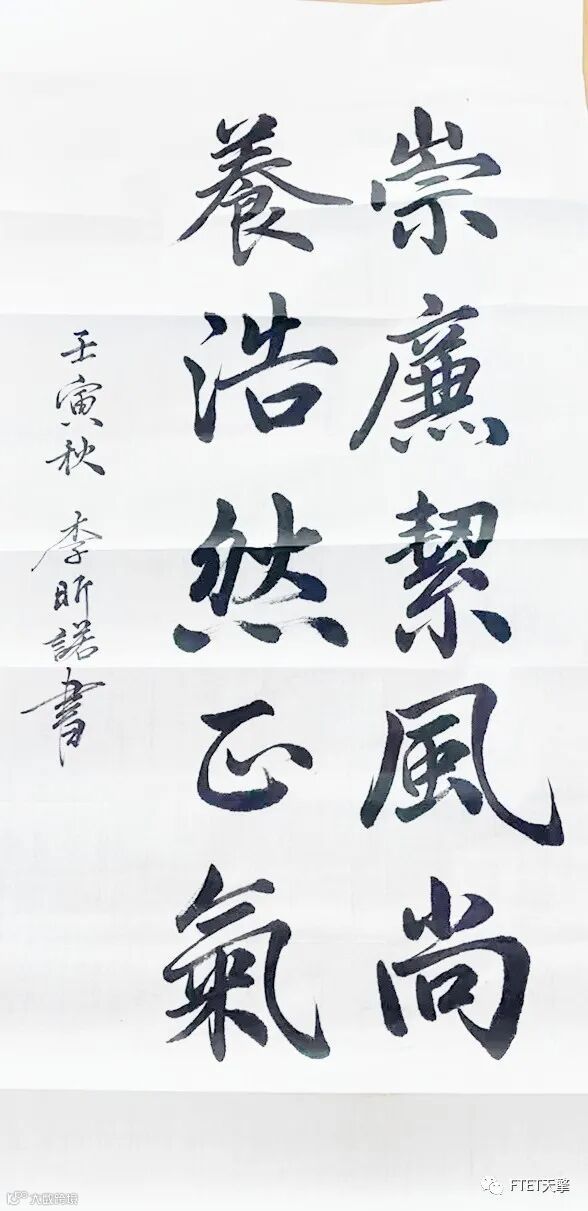 崇廉絜風尚
養浩然正氣
壬寅秋 李昕諾書
FTET天擎
大数跨境